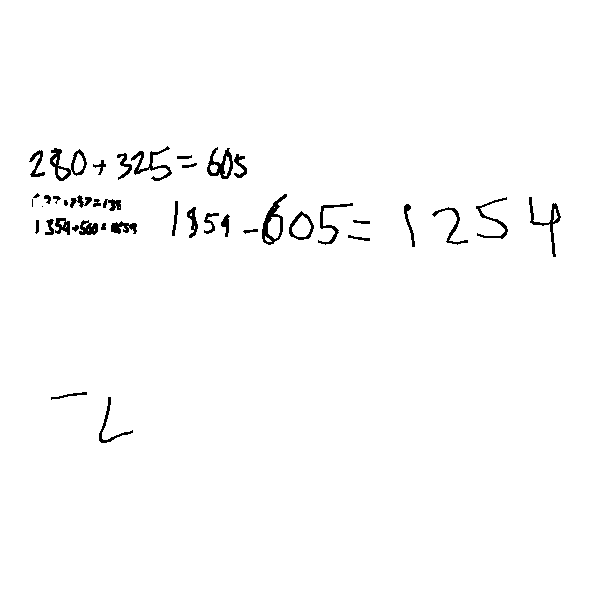 280+325=605
1359+500=1859
1859-605=1254